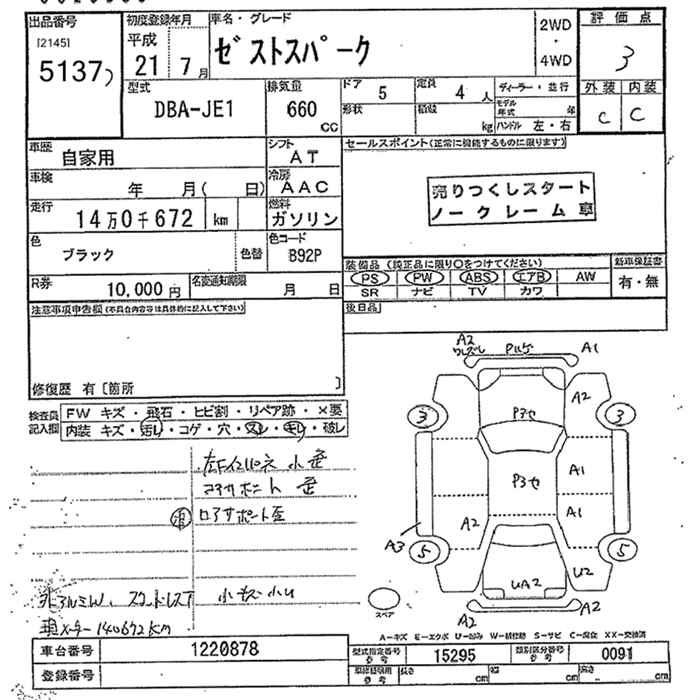 出品番号 初度登録年月 車名・グレード 2WD・4WD 評価点
[2145]
5137 平成 21 7月 ゼストスパーク 3
型式 排気量 ドア 5 定員 4人 ディーラー・並行 外装 内装
DBA-JE1 660 cc 形状 積載 kg モデル年式 年 ハンドル 左・右 C C
車歴 自家用 シフト AT セールスポイント(正常に機能するものに限ります)
車検 年 月( 日) 冷房 AAC 売りつくしスタート
走行 14万0千672 km 燃料 ガソリン ノークレーム車
色 ブラック 色替 色コード B92P
装備品(純正品に限り○をつけてください) 新車保証書
PS PW ABS エアB AW 有・無
SR ナビ TV カワ
R券 10,000円 名変通知期限 月 日
注意事項申告欄(不具合内容等は具体的に記入して下さい) 後日品
修復歴 有〔箇所 〕
検査員記入欄 FW キズ・飛石・ヒビ割・リペア跡・×要
内装 キズ・汚レ・コゲ・穴・スレ・キレ・破レ
コアサポート 歪
ロアサポート歪
メーター140672KM
A2 A1
A2
P3セ
3 3
P3セ A1
A2 A1
A3 5 5
UA2 U2
A2 A2
スペア
A-キズ E-エクボ U-凹み W-補修跡 S-サビ C-腐食 XX-交換済
車台番号 1220878 型式指定番号 参考 15295 類別区分番号 参考 0091
登録番号 長さ cm 幅 cm 高さ cm